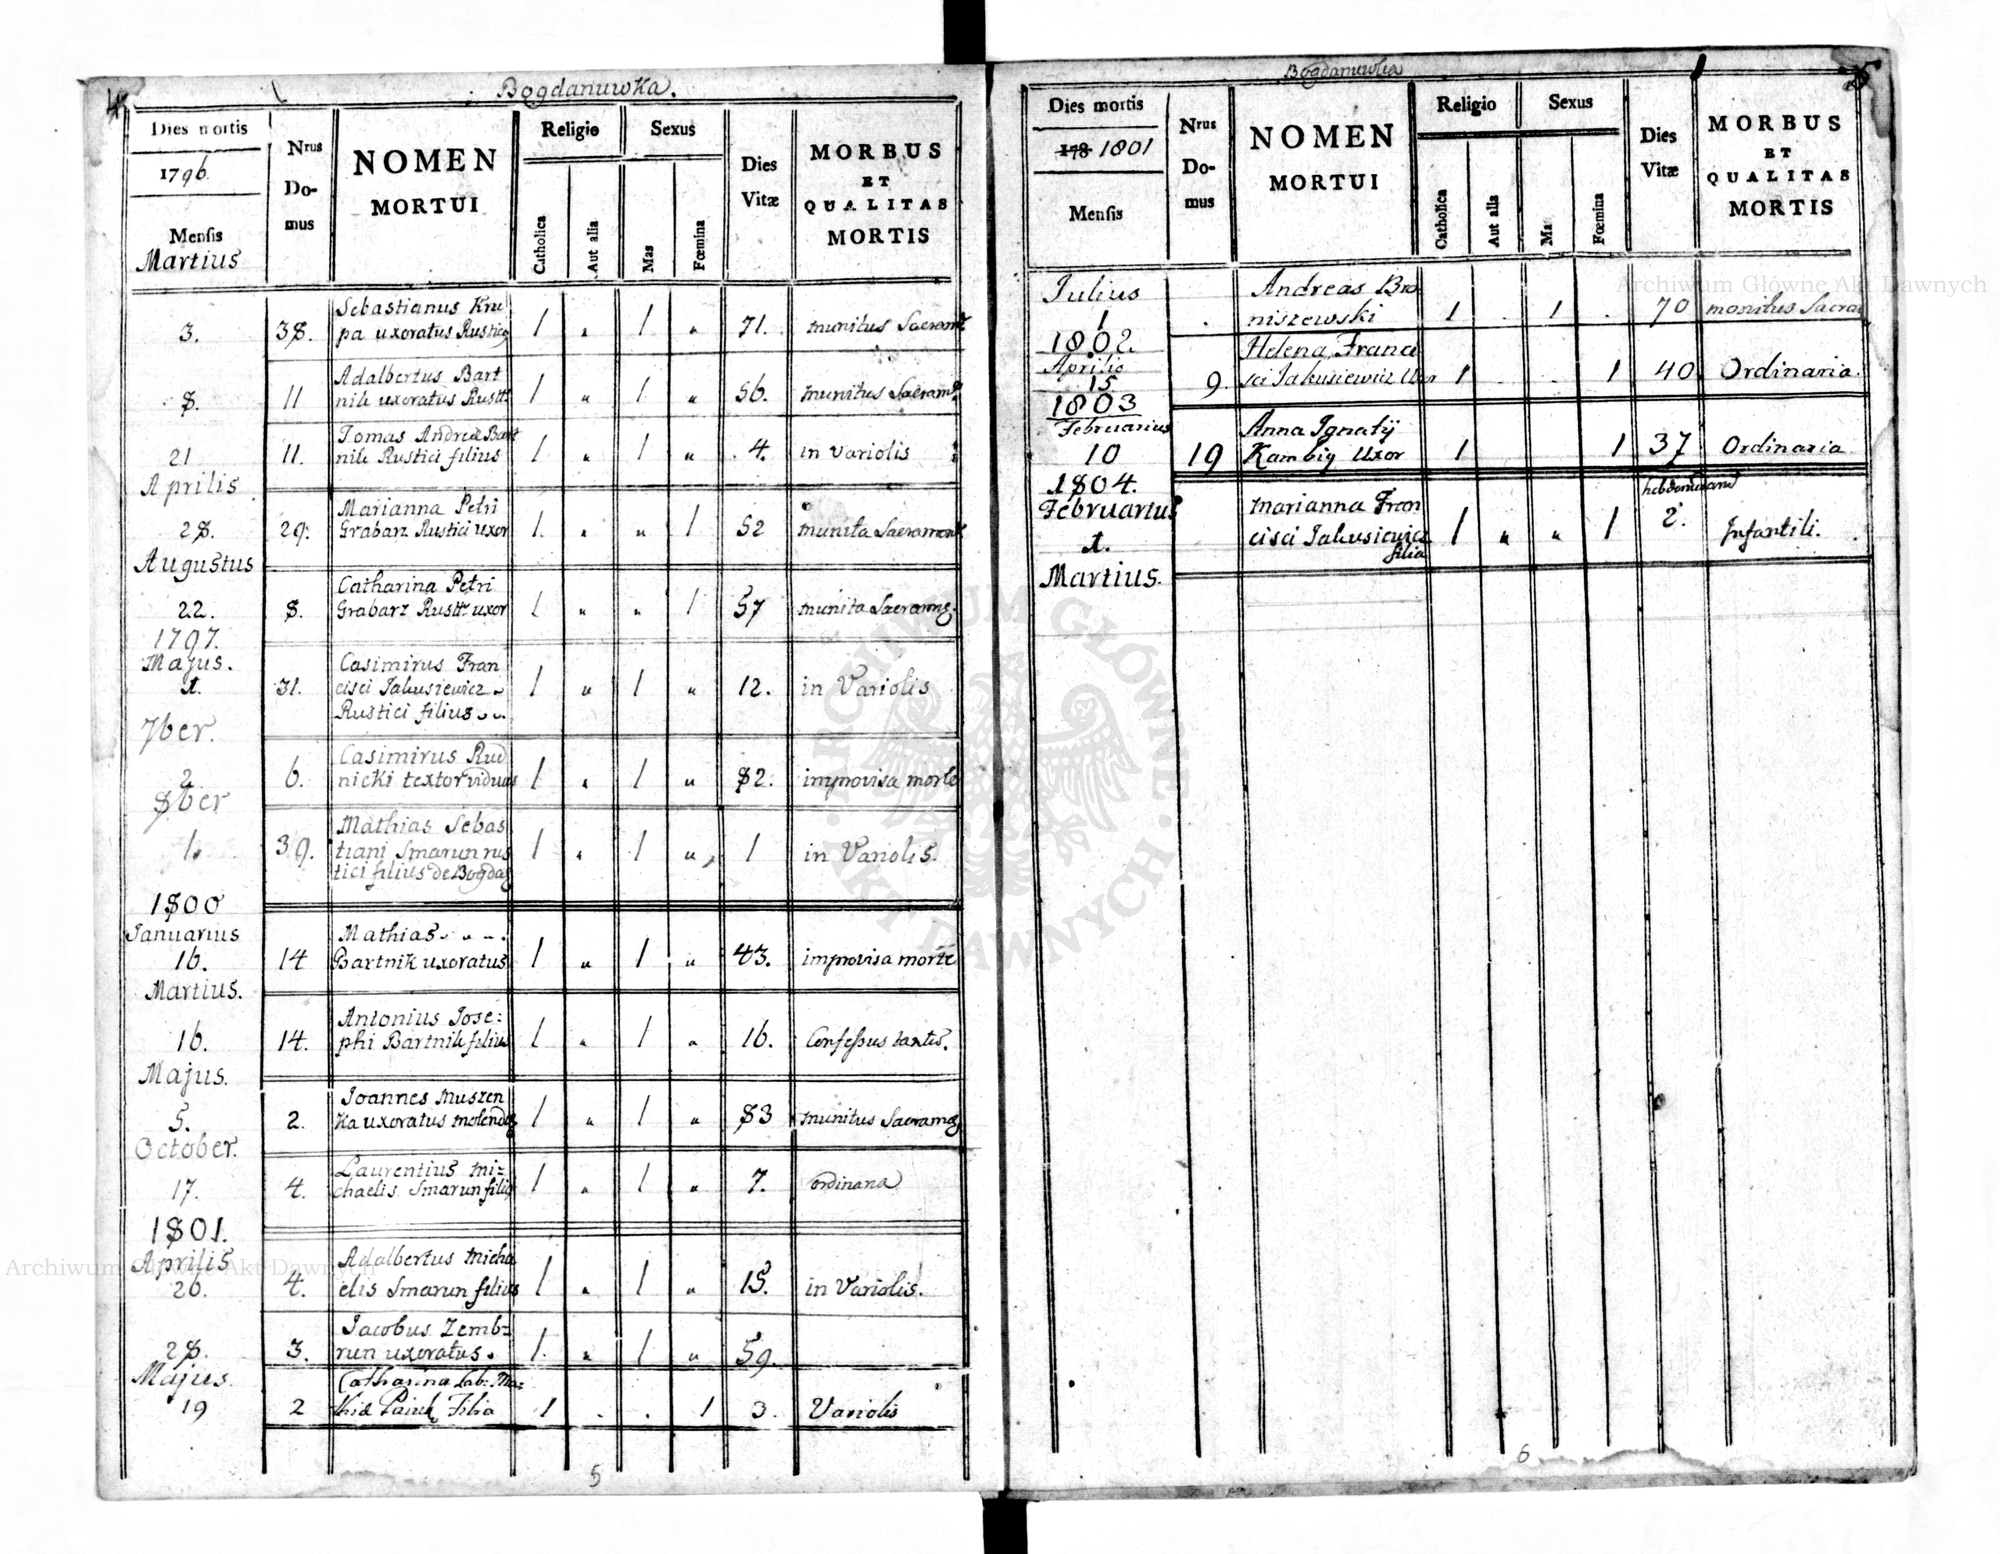 4
Bogdanuwka.
Dies mortis
1796.
Mensis
Martius
Nrus
Do-
mus
NOMEN
MORTUI
Religio
Catholica
Aut alia
Sexus
Mas
Fœmina
Dies
Vitæ
MORBUS
ET
QUALITAS
MORTIS
Sebastianus Kru
3. 38. pa uxoratus Rustic9 1 „ 1 „ 71. munitus Sacram
Adalbertus Bart
8. 11 nik uxoratus Rustt: 1 „ 1 „ 56. munitus Sacram
Tomas Andreæ Bart
21 11. nik Rustici filius 1 „ 1 „ 4. in Variolis
Aprilis
Marianna Petri
28. 29. Grabarz Rustici uxor 1. „ „ 1 52 munita Sacrament
Augustus
Catharina Petri
22. 8. Grabarz Rustt: uxor 1 „ „ 1 57 munita Sacram
1797.
Majus.
Casimirus Fran
1. 31. cisci Jakusiewicz 1 „ 1 „ 12. in Variolis
Rustici filius
7ber.
Casimirus Rud
2 6. nicki textor viduus 1 „ 1 „ 82. improvisa morte
8ber
Mathias Sebas
1. 39. tiani Smarun rus 1 „ 1 „ 1 in Variolis.
tici filius de Bogda
1800
Januarius
Mathias
16. 14 Bartnik uxoratus 1 „ 1 „ 43. improvisa morte
Martius.
Antonius Jose=
16. 14. phi Bartnik filius 1 „ 1 „ 16. Confessus
Majus.
Joannes Muszen
5. 2. ka uxoratus 1 „ 1 „ 83 munitus Sacram
October.
Laurentius Mi=
17. 4. chaelis Smarun fili9 1 „ 1 „ 7. ordinaria
1801.
Aprilis
Adalbertus Micha
26. 4. elis Smarun filius 1 „ 1 „ 15. in Variolis.
Jacobus Zemb=
28. 3. run uxoratus. 1. „ 1 „ 59.
Majus.
Catharina Lab: Ma=
19 2 Filia 1 . . 1 3. Variolis
5
5
Bogdanuwka
Dies mortis
178 1801
Mensis
Nrus
Do-
mus
NOMEN
MORTUI
Religio
Catholica
Aut alia
Sexus
Mas
Fœmina
Dies
Vitæ
MORBUS
ET
QUALITAS
MORTIS
Julius
Andreas Bro
1 . niszewski 1 . 1 . 70 monitus Sacra
1802.
Helena Franci
Aprilis
15 9. sci Jakusiewicz Uxor 1 . . 1 40 Ordinaria.
1803
Februarius
Anna Ignatij
10 19 Kambiy Uxor 1 1 37 Ordinaria
1804.
Februarius
Marianna Fran
1. cisci Jakusiewicz 1 „ „ 1 2. Infantili.
filia
Martius.
6
Archiwum Główne Akt Dawnych
Archiwum Główne Akt Dawnych
ARCHIWUM GŁÓWNE · AKT DAWNYCH ·